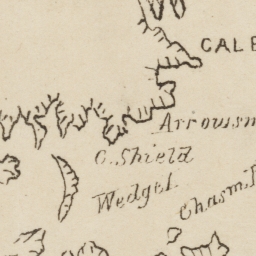 CALE
Arrowsm
C. Shield
Wedge I.
Chasm I